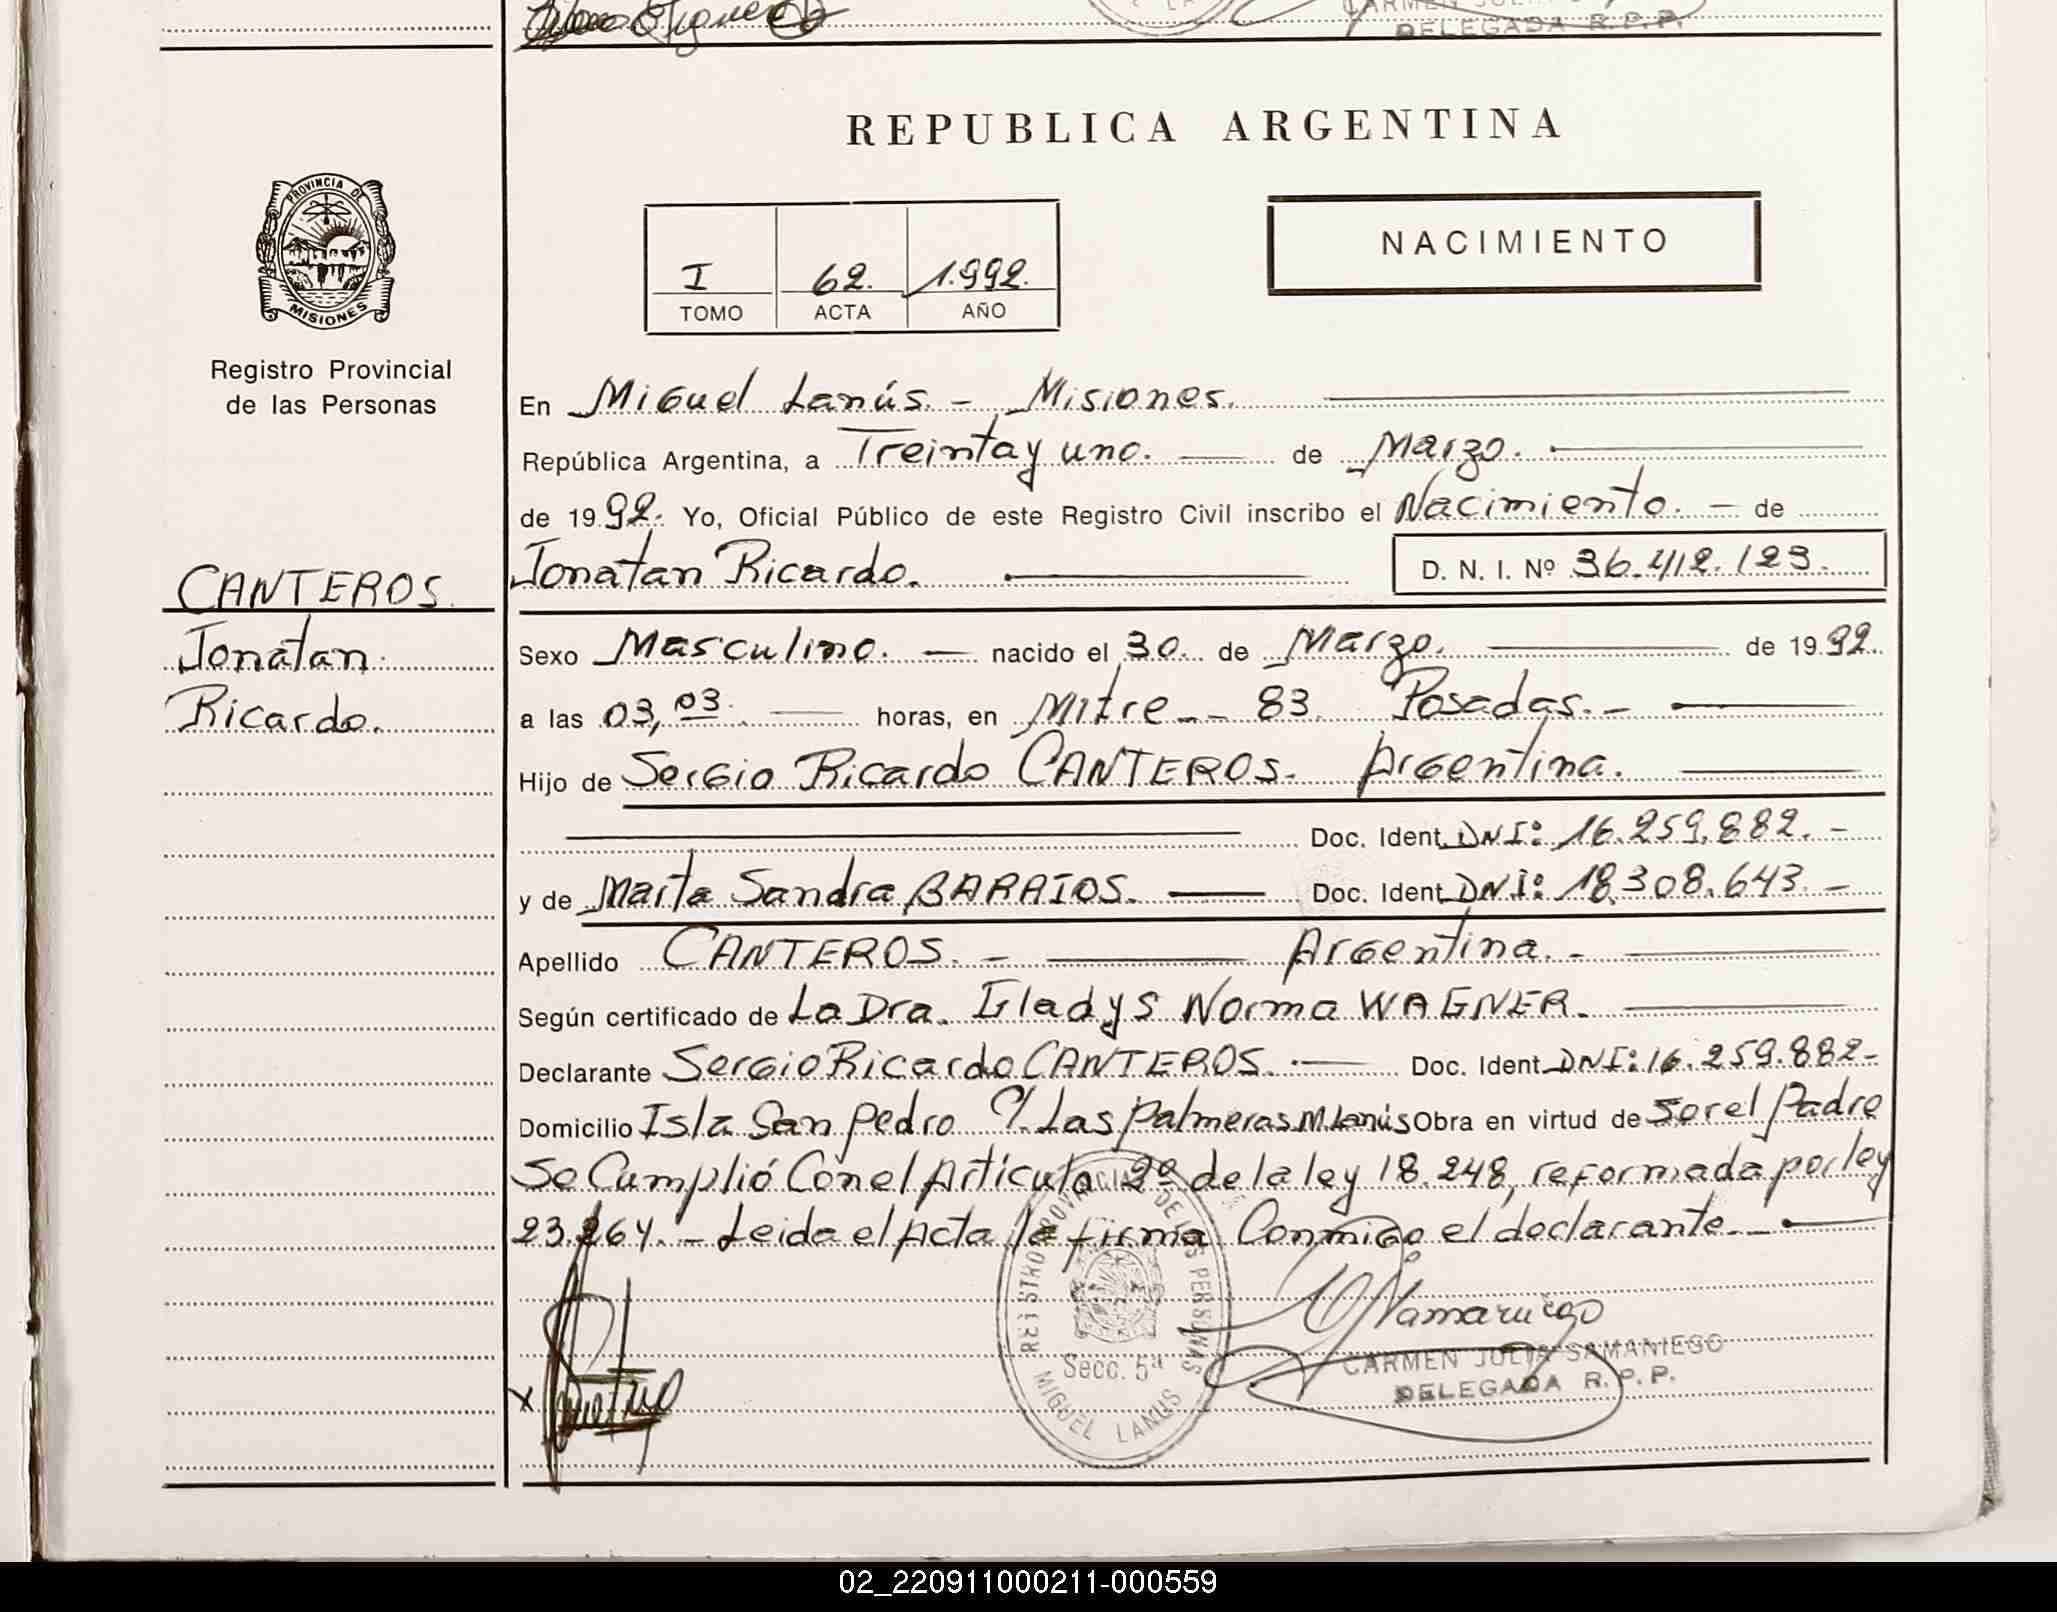 CARMEN
DELEGADA R.P.P.
REPUBLICA ARGENTINA
PROVINCIA DE
MISIONES
I 62. 1.992.
TOMO ACTA AÑO
NACIMIENTO
Registro Provincial
de las Personas
CANTEROS.
Jonatan
Ricardo.
En Miguel Lanús. - Misiones.
República Argentina, a Treinta y uno. de Marzo.
de 1992. Yo, Oficial Público de este Registro Civil inscribo el Nacimiento. - de
Jonatan Ricardo. D. N. I. Nº 36.412.123.
Sexo Masculino. - nacido el 30. de Marzo. de 1992.
a las 03,03. horas, en Mitre - - 83. Posadas. -
Hijo de Sergio Ricardo CANTEROS. Argentina.
Doc. Ident. DNI: 16.259.882. -
y de Marta Sandra BARRIOS. Doc. Ident. DNI: 18.308.643. -
Apellido CANTEROS. - Argentina. -
Según certificado de La Dra. Gladys Norma WAGNER.
Declarante Sergio Ricardo CANTEROS. Doc. Ident. DNI: 16.259.882-
Domicilio Isla San Pedro C/. Las Palmeras M. Lanús Obra en virtud de Ser el Padre
Se Cumplió Con el Artículo 2º de la ley 18.248, reformada por ley
23.264. - Leida el Acta la firma Conmigo el declarante. -
REGISTRO PROVINCIAL DE LAS PERSONAS
Secc. 5ª
MIGUEL LANUS
CARMEN JULIA SAMANIEGO
DELEGADA R.P.P.
x
02_220911000211-000559